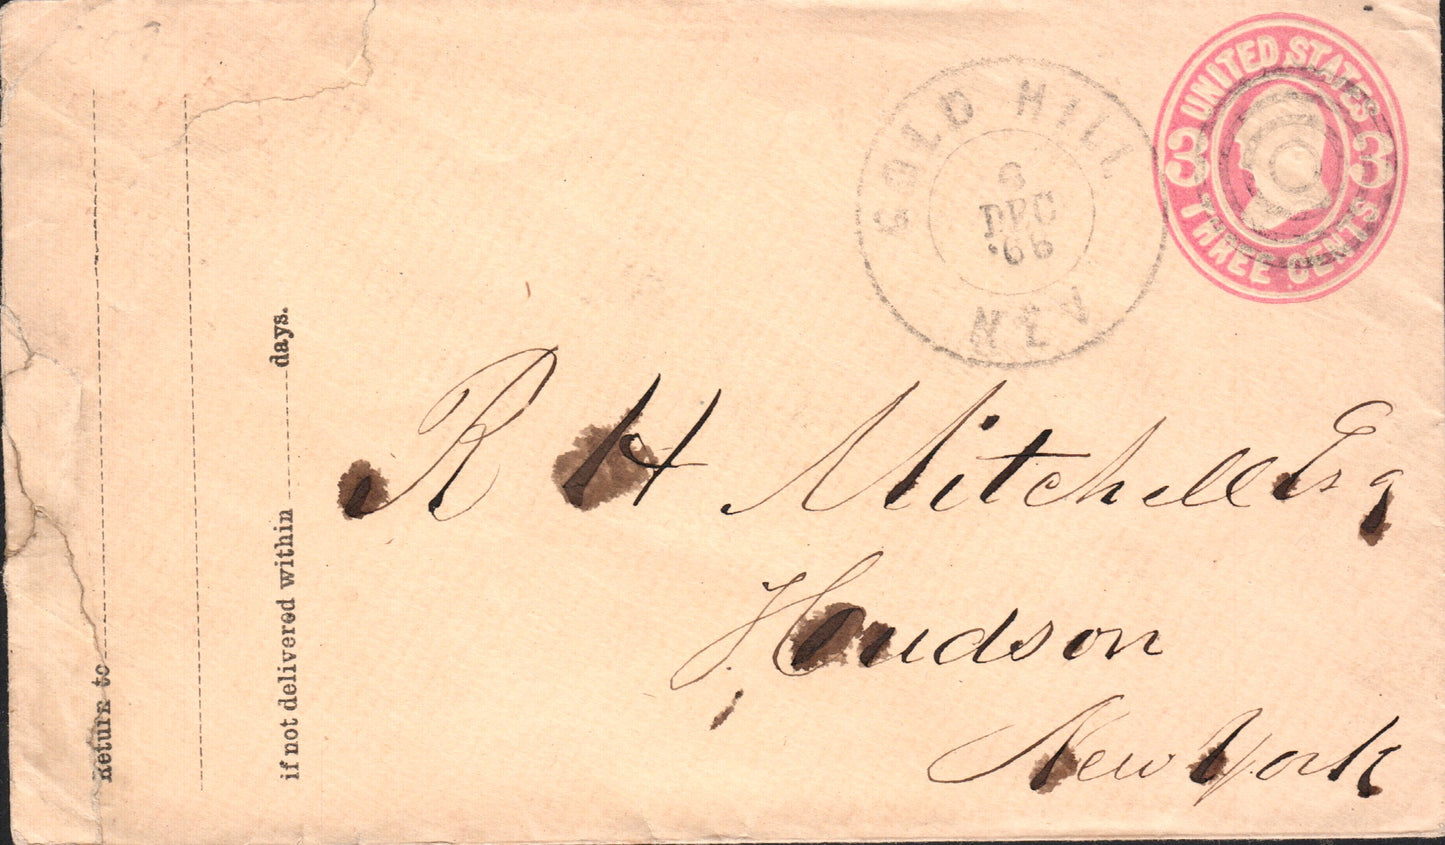 Return to
if not delivered within days.
GOLD HILL
6
DEC
'66
NEV
UNITED STATES
3 3
THREE CENTS
R H Mitchell Esq
Hudson
New York